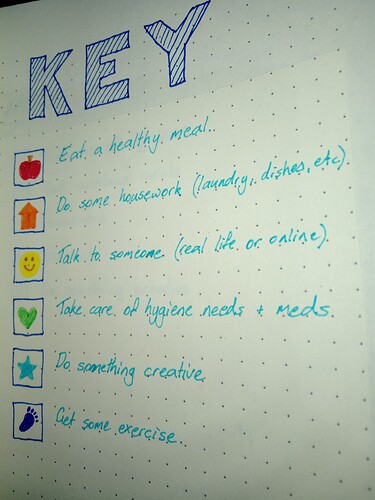 KEY
Eat a healthy meal..
Do some housework (laundry, dishes, etc).
Talk to someone (real life or online).
Take care of hygiene needs + meds.
Do something creative.
Get some exercise..